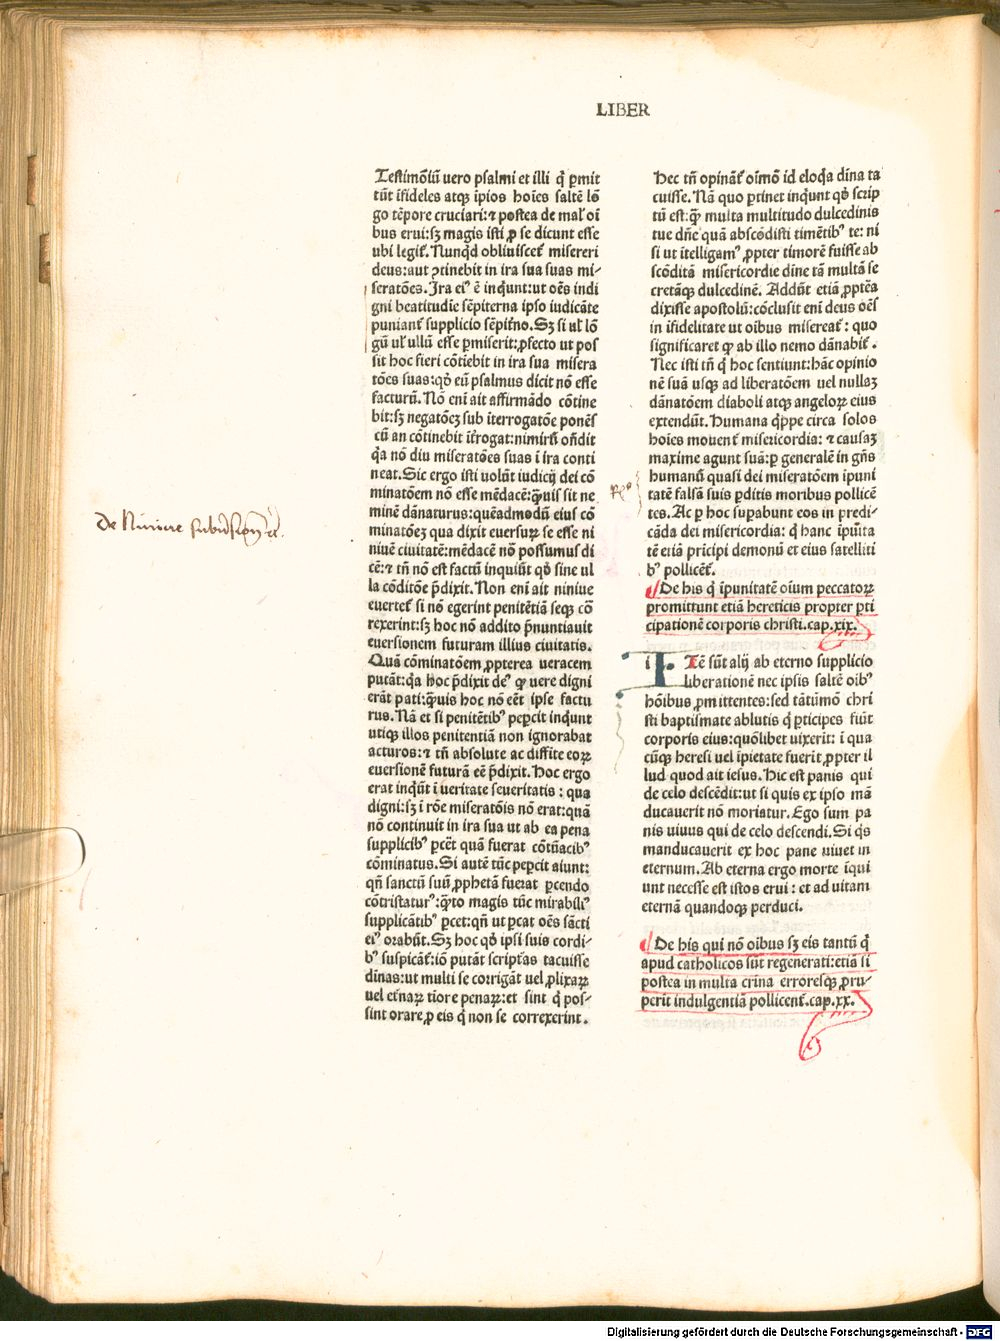 LIBER
Testimõiũ uero psalmi et illi q̃ ꝑmit
tũt ĩfideles atqꝫ ĩpios hoĩes saltẽ lõ
go tẽpore cruciari:⁊ postea de mal' oĩ
bus erui:sꝫ magis isti ꝓ se dicunt esse
ubi legit᷑. Nunqd obliuiscet᷑ misereri
deus:aut ꝯtinebit in ira sua suas mi⸗
seratões. Ira ei' ẽ inqunt:ut oẽs indi
gni beatitudĩe sẽpiterna ipso iudicãte
puniant᷑ supplicio sẽpit̃no. Sꝫ si ul' lõ
gũ ul' ullũ esse ꝑmiserit:ꝓfecto ut pos
sit hoc fieri cõtiebit in ira sua misera
tões suas:qõ eũ psalmus dicit nõ esse
facturũ. Nõ enĩ ait affirmãdo cõtine
bit:sꝫ negatõeꝫ sub ĩterrogatõe ponẽs
cũ an cõtinebit ĩt̃rogat:nimirũ oñdit
qa nõ diu miseratões suas ĩ ira conti
neat. Sic ergo isti uolũt iudicij dei cõ
minatõem nõ esse mẽdacẽ:q̃uis sit ne
minẽ dãnaturus:quẽadmodũ eius cõ
minatõeꝫ qua dixit euersuꝝ se esse ni
niuẽ ciuitatẽ:mẽdacẽ nõ possumus di
cẽ:⁊ tñ nõ est factũ inquiũt qõ sine ul
la cõditõe p̃dixit. Non enĩ ait niniue
euertet᷑ si nõ egerint penitẽtiã seqꝫ cõ
rexerint:sꝫ hoc nõ addito p̃nuntiauit
euersionem futuram illius ciuitatis.
Quã cõminatõem ꝓpterea ueracem
putãt:qa hoc p̃dixit de' ꝙ uere digni
erãt pati:q̃uis hoc nõ eẽt ipse factu
rus. Nã et si penitẽtib' peꝑcit inqunt
utiqꝫ illos penitentiã non ignorabat
acturos:⁊ tñ absolute ac diffite eoꝝ
euersionẽ futurã eẽ p̃dixit. Hoc ergo
erat inqũt ĩ ueritate seueritatis : qua
digni:sꝫ ĩ rõe miseratõis nõ erat:quã
nõ continuit in ira sua ut ab ea pena
supplicib' ꝑcẽt quã fuerat cõtũacib'
cõminatus. Si autẽ tũc peꝑcit aiunt:
qñ sanctũ suũ ꝓphetã fuerat ꝑcendo
cõtristatur':q̃to magis tũc mirabili'
supplicãtib' ꝑcet:qñ ut ꝑcat oẽs sãcti
ei' orabũt. Sꝫ hoc qõ ipsi suis cordi⸗
b' suspicãt᷑:iõ putãt script̃as tacuisse
diñas:ut multi se corrigãt uel ꝓlixaꝝ
uel et̃naꝝ tĩore penaꝝ:et sint q̃ pos⸗
sint orare ꝓ eis q̃ non se correxerint.
de Niniue
Hec tñ opinãt᷑ oĩmõ id eloqa diña ta
cuisse. Nã quo ꝑtinet inqũnt qõ scrip
tũ est:q̃ multa multitudo dulcedinis
tue dñe quã abscõdisti timẽtib' te: ni
si ut ĩtelligam' ꝓpter timorẽ fuisse ab
scõditã misericordie diñe tã multã se
cretãqꝫ dulcedinẽ. Addũt etiã ꝓptẽa
dixisse apostolũ:cõclusit enĩ deus oẽs
in ĩfidelitate ut oĩbus misereat᷑ : quo
significaret ꝙ ab illo nemo dãnabit᷑ .
Nec isti tñ q̃ hoc sentiunt:hãc opinio
nẽ suã usqꝫ ad liberatõem uel nullaꝫ
dãnatõem diaboli atqꝫ angeloꝝ eius
extendũt. Humana q̃ppe circa solos
hoĩes mouent᷑ misericordia: ⁊ causaꝫ
maxime agunt suã:ꝑ generalẽ in gñs
humanũ quasi dei miseratõem ĩpuni
tatẽ falsã suis ꝑditis moribus pollicẽ
tes. Ac ꝑ hoc suꝑabunt eos in predi⸗
cãda dei misericordia: q̃ hanc ĩpuĩta
tẽ etiã prĩcipi demonũ et eius satelliti
b' pollicẽt᷑.
De his q̃ ĩpunitatẽ oĩum peccatoꝝ
promittunt etiã hereticis propter pti
cipationẽ corporis christi.cap.xix.
i ITẽ sũt alij ab eterno supplicio
liberationẽ nec ipsis saltẽ oĩb'
hõibus ꝓmittentes:sed tãtũmõ chri
sti baptismate ablutis q̃ ꝑticipes fiũt
corporis eius:quõlibet uixerit: ĩ qua
cũqꝫ heresi uel ĩpietate fuerit ꝓpter il
lud quod ait iesus. Hic est panis qui
de celo descẽdit:ut si quis ex ipso mã
ducauerit nõ moriatur. Ego sum pa
nis uiuus qui de celo descendi. Si q̃s
manducauerit ex hoc pane uiuet in
eternum. Ab eterna ergo morte ĩqui
unt necesse est istos erui : et ad uitam
eternã quandoqꝫ perduci.
De his qui nõ oĩbus sꝫ eis tantũ q̃
apud catholicos sũt regenerati:etiã si
postea in multa crĩna erroresqꝫ ꝓru⸗
perit indulgentiã pollicent᷑.cap.xx.
Digitalisierung gefördert durch die Deutsche Forschungsgemeinschaft - DFG